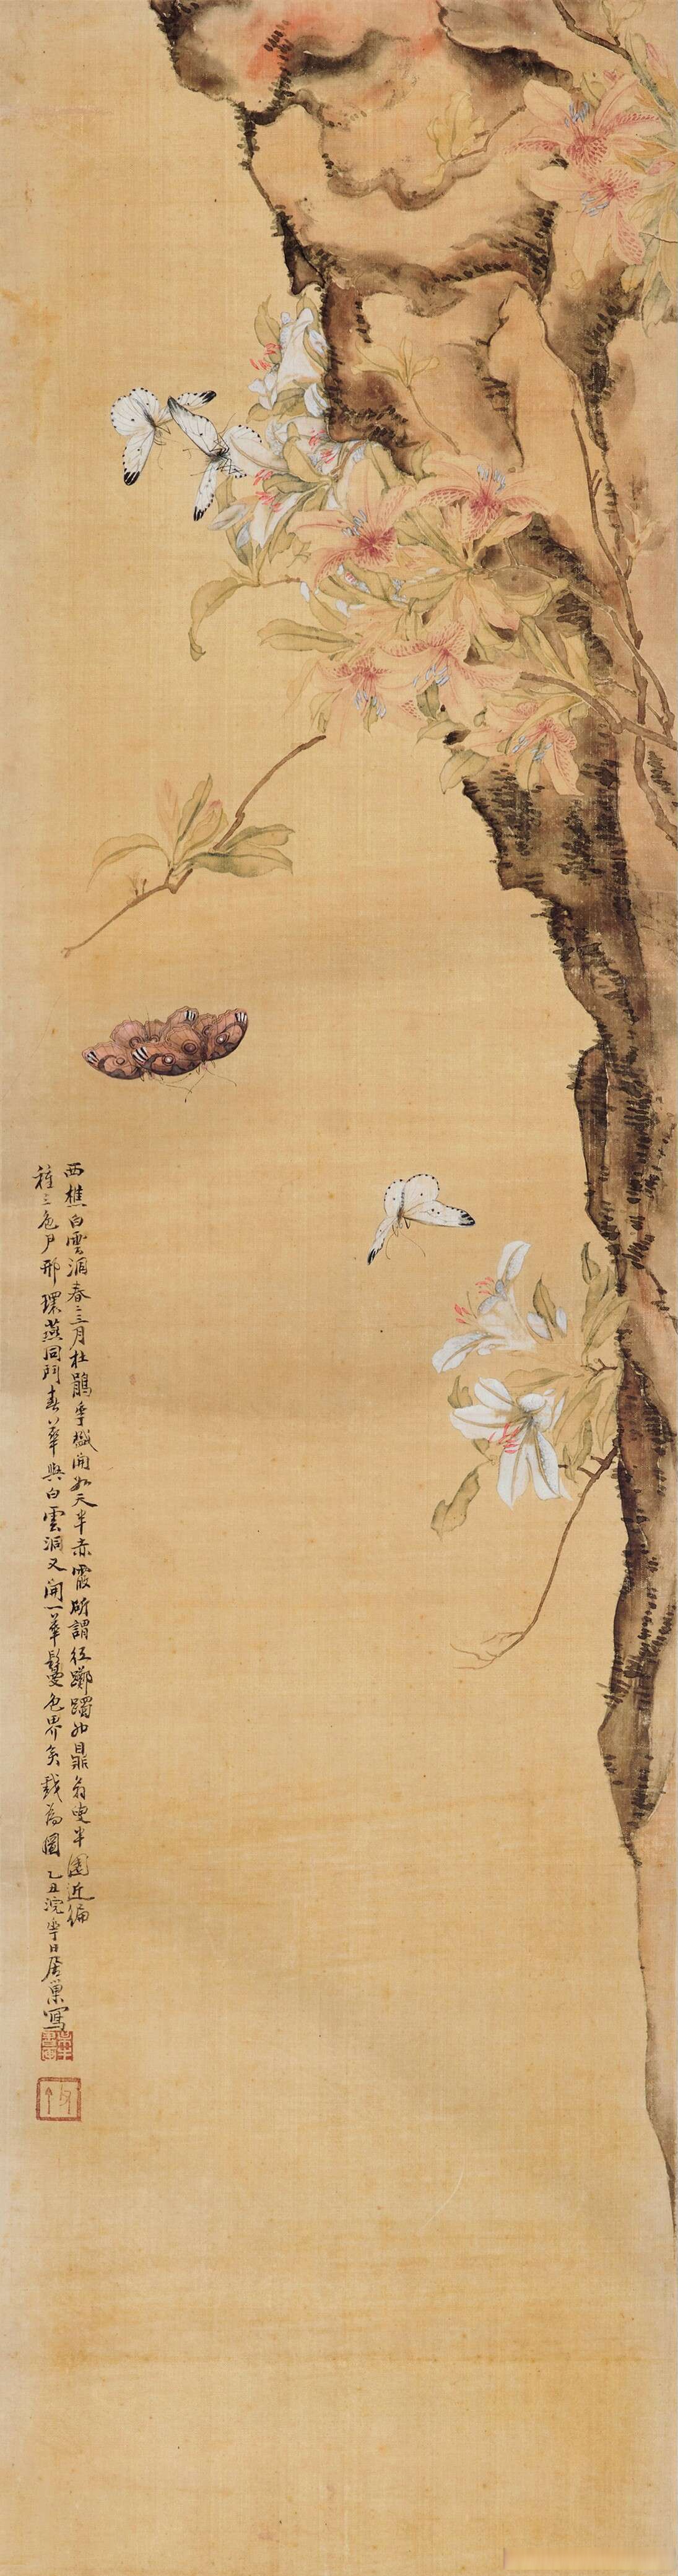 西樵白雲洞春二三月杜鵑華盛開如天半赤霞所謂紅躑躅也鼎翁叟半園近徧
種三色尹邢環燕同鬥春華與白雲洞又開一華鬘色界矣戲為圖乙丑浣華日居巢寫